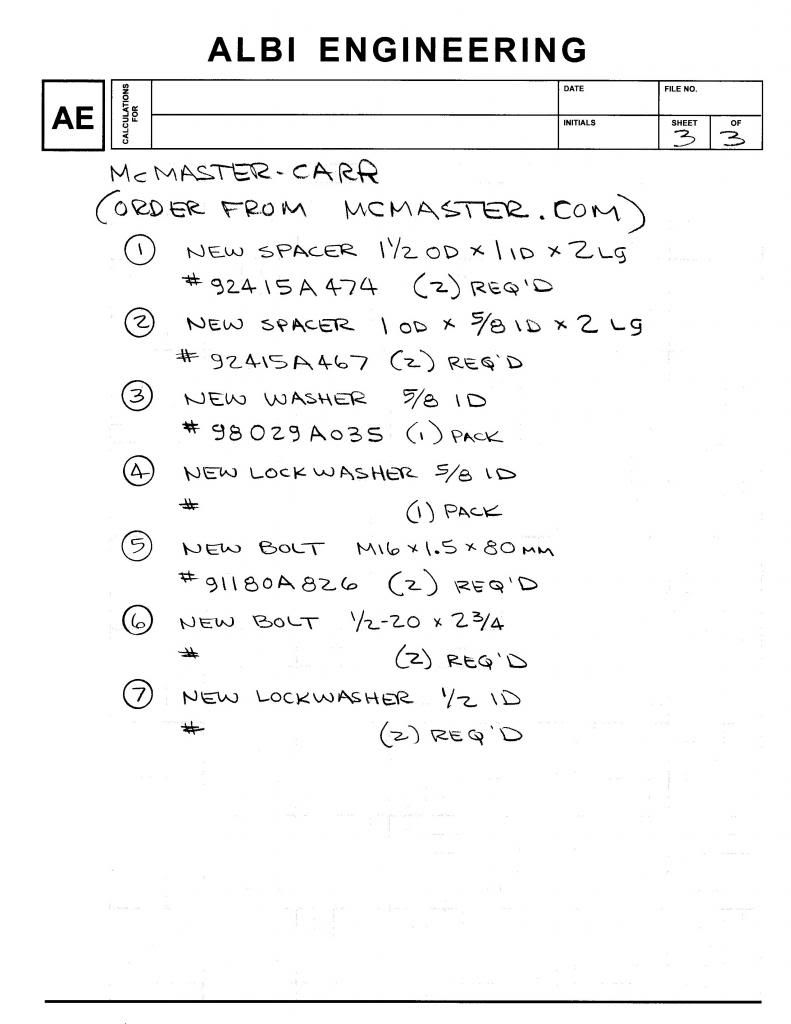 ALBI ENGINEERING
AE
CALCULATIONS FOR
DATE
FILE NO.
INITIALS
SHEET
OF
3
3
McMASTER-CARR
(ORDER FROM MCMASTER.COM)
① NEW SPACER 1 1/2 OD x 1 ID x 2 Lg
# 92415A474 (2) REQ'D
② NEW SPACER 1 OD x 5/8 ID x 2 Lg
# 92415A467 (2) REQ'D
③ NEW WASHER 5/8 ID
# 98029A035 (1) PACK
④ NEW LOCKWASHER 5/8 ID
# (1) PACK
⑤ NEW BOLT M16 x 1.5 x 80 MM
# 91180A826 (2) REQ'D
⑥ NEW BOLT 1/2-20 x 2 3/4
# (2) REQ'D
⑦ NEW LOCKWASHER 1/2 ID
# (2) REQ'D